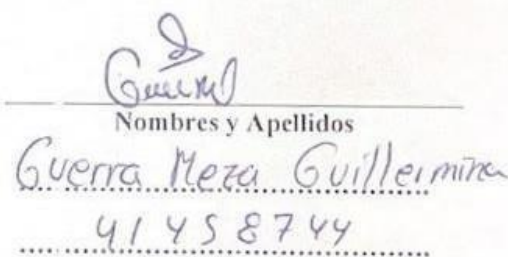 Nombres y Apellidos
Guerra Meza Guillermina
41458744